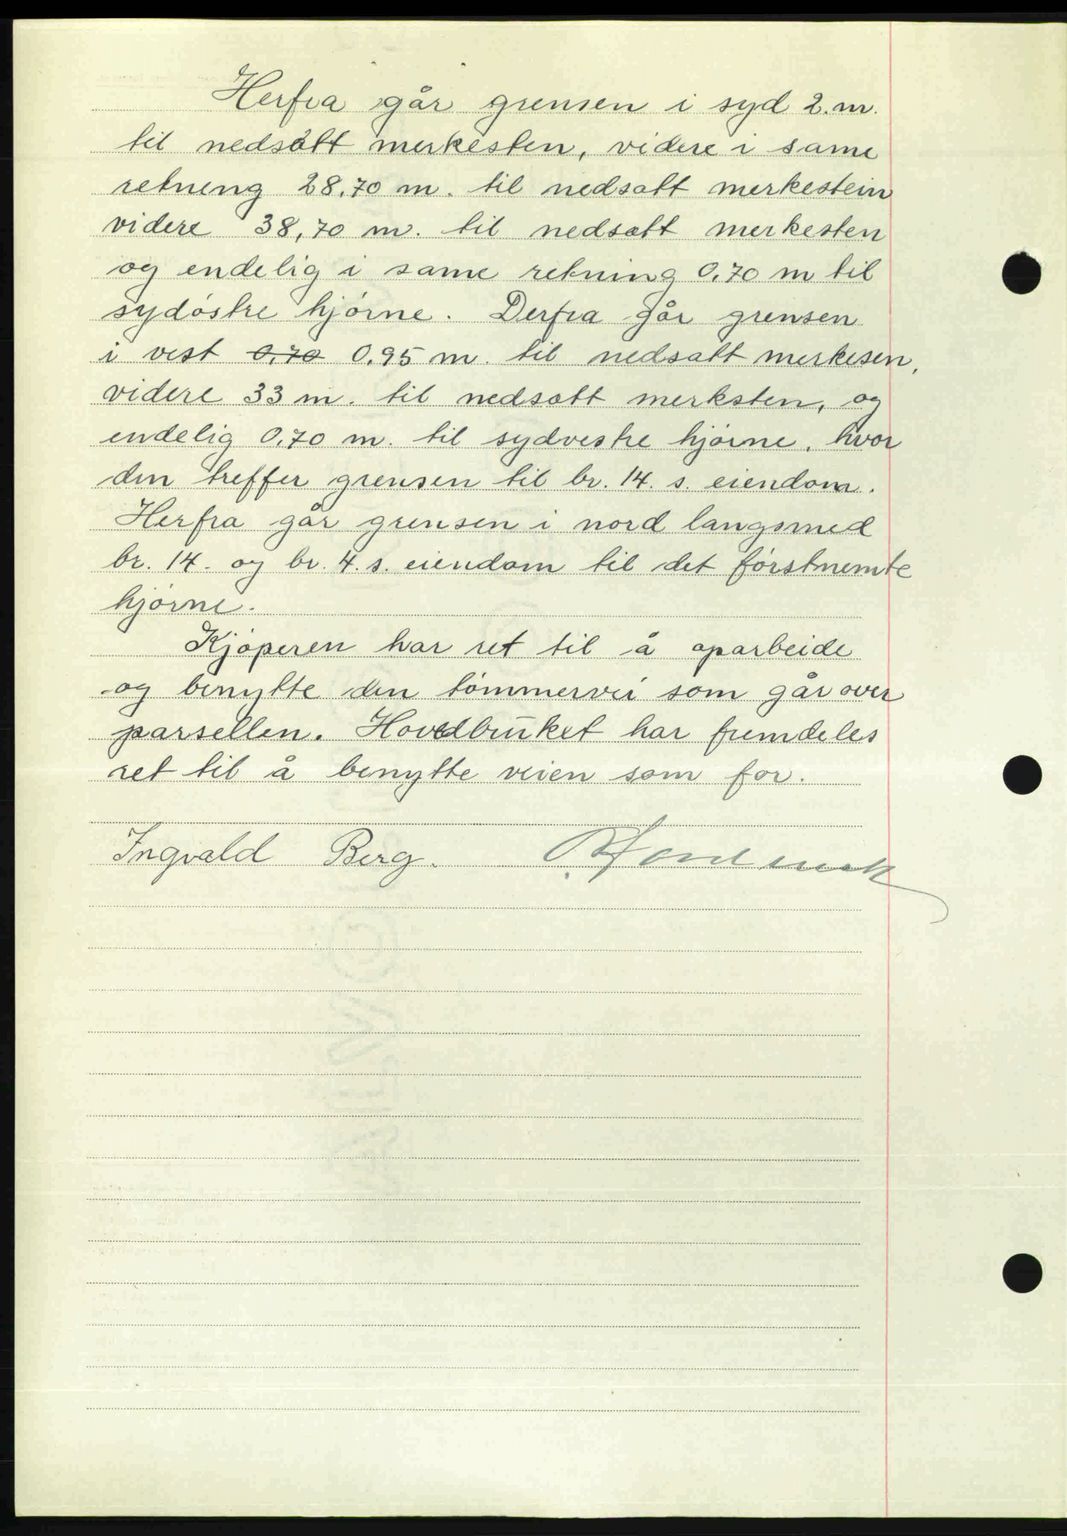 Herfra går grensen i syd 2. m.
til nedsatt merkesten, videre i same
retning 28,70 m. til nedsatt merkestein
videre 38,70 m. til nedsatt merkesten
og endelig i same retning 0,70 m til
sydöstre hjörne. Derfra går grensen
i vest 0,70 0,95 m. til nedsatt merkesen,
videre 33 m. til nedsatt merksten, og
endelig 0,70 m. til sydvestre hjörne, hvor
den treffer grensen til br. 14. s. eiendom.
Herfra går grensen i nord langsmed
br. 14. og br. 4. s. eiendom til det förstnemte
hjörne.
Kjöperen har ret til å oparbeide
og benytte den tömmervei som går over
parsellen. Hovedbruket har fremdeles
ret til å benytte veien som for.
Ingvald Berg.